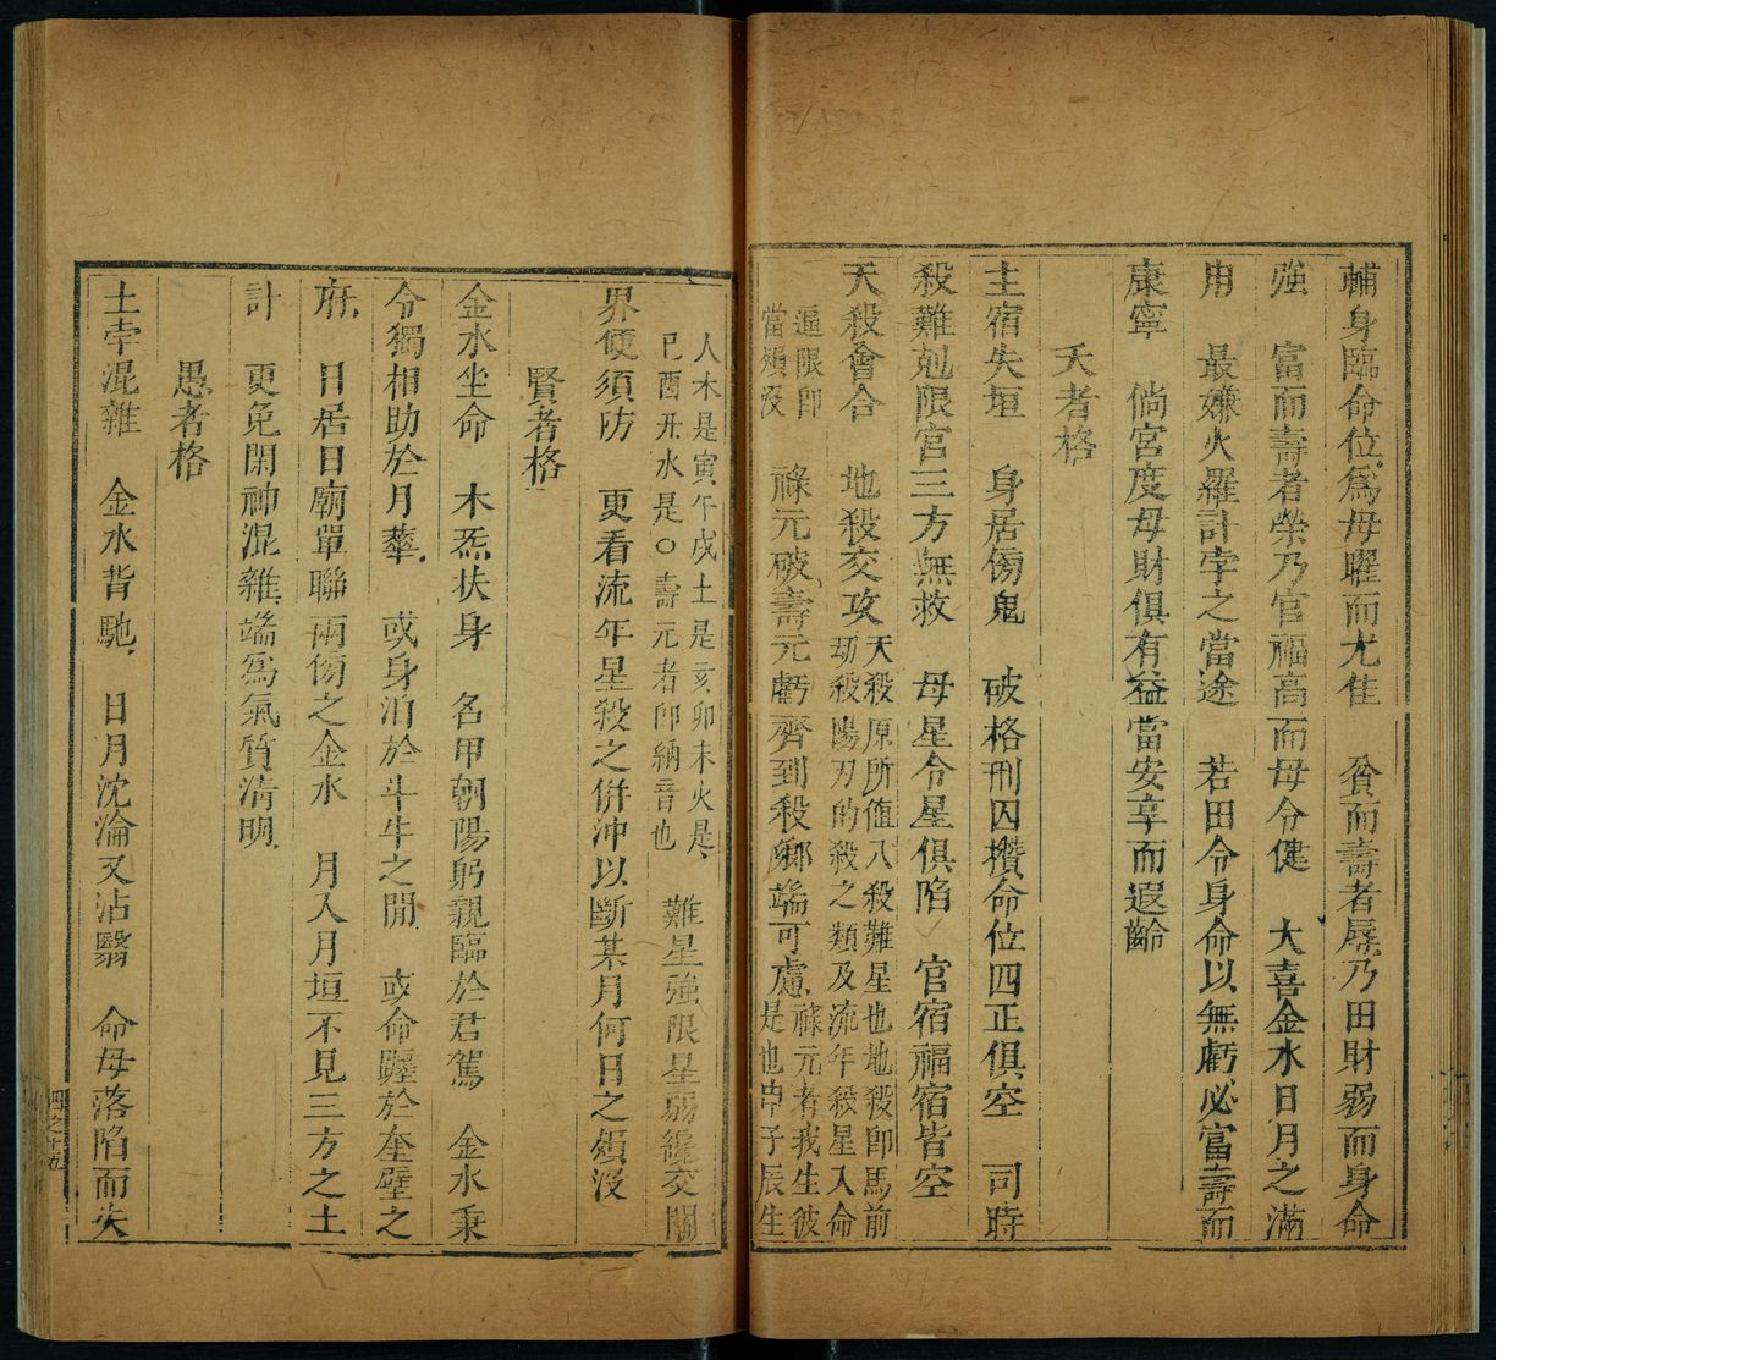 輔身臨命位爲母曜而尤佳　貧而壽者辱乃田財弱而身命
強　富而壽者榮乃官福高而母令健　大喜金水日月之滿
用　最嫌火羅計孛之當途　若田令身命以無虧必富壽而
康寧　倘宮度母財俱有益當安享而遐齡
夭者格
主宿失垣　身居傷鬼　破格刑囚攢命位四正俱空　司時
殺難尅限宮三方無救　母星令星俱陷　官宿福宿皆空
天殺會合　地殺交攻
天殺原所值八殺難星也地殺即馬前
劫殺陽刃的殺之類及流年殺星入命
逼限即
當殞没
祿元破壽元虧齊到殺鄉端可慮
祿元者我生彼
是也申子辰生
人木是寅午戌土是亥卯未火是
巳酉丑水是○壽元者卽納音也
難星強限星弱纔交關
界便須防　更看流年星殺之併沖以斷某月何日之殞没
賢者格
金水坐命　木炁扶身　名甲朝陽躬親臨於君駕　金水秉
令獨相助於月華　或身泊於斗牛之間　或命躔於奎壁之
府　日居日廟單聯兩傍之金水　月入月垣不見三方之土
計　更免閑神混雜端爲氣質清明
愚者格
土孛混雜　金水背馳　日月沈淪又沾翳　命母落陷而失
四之十五